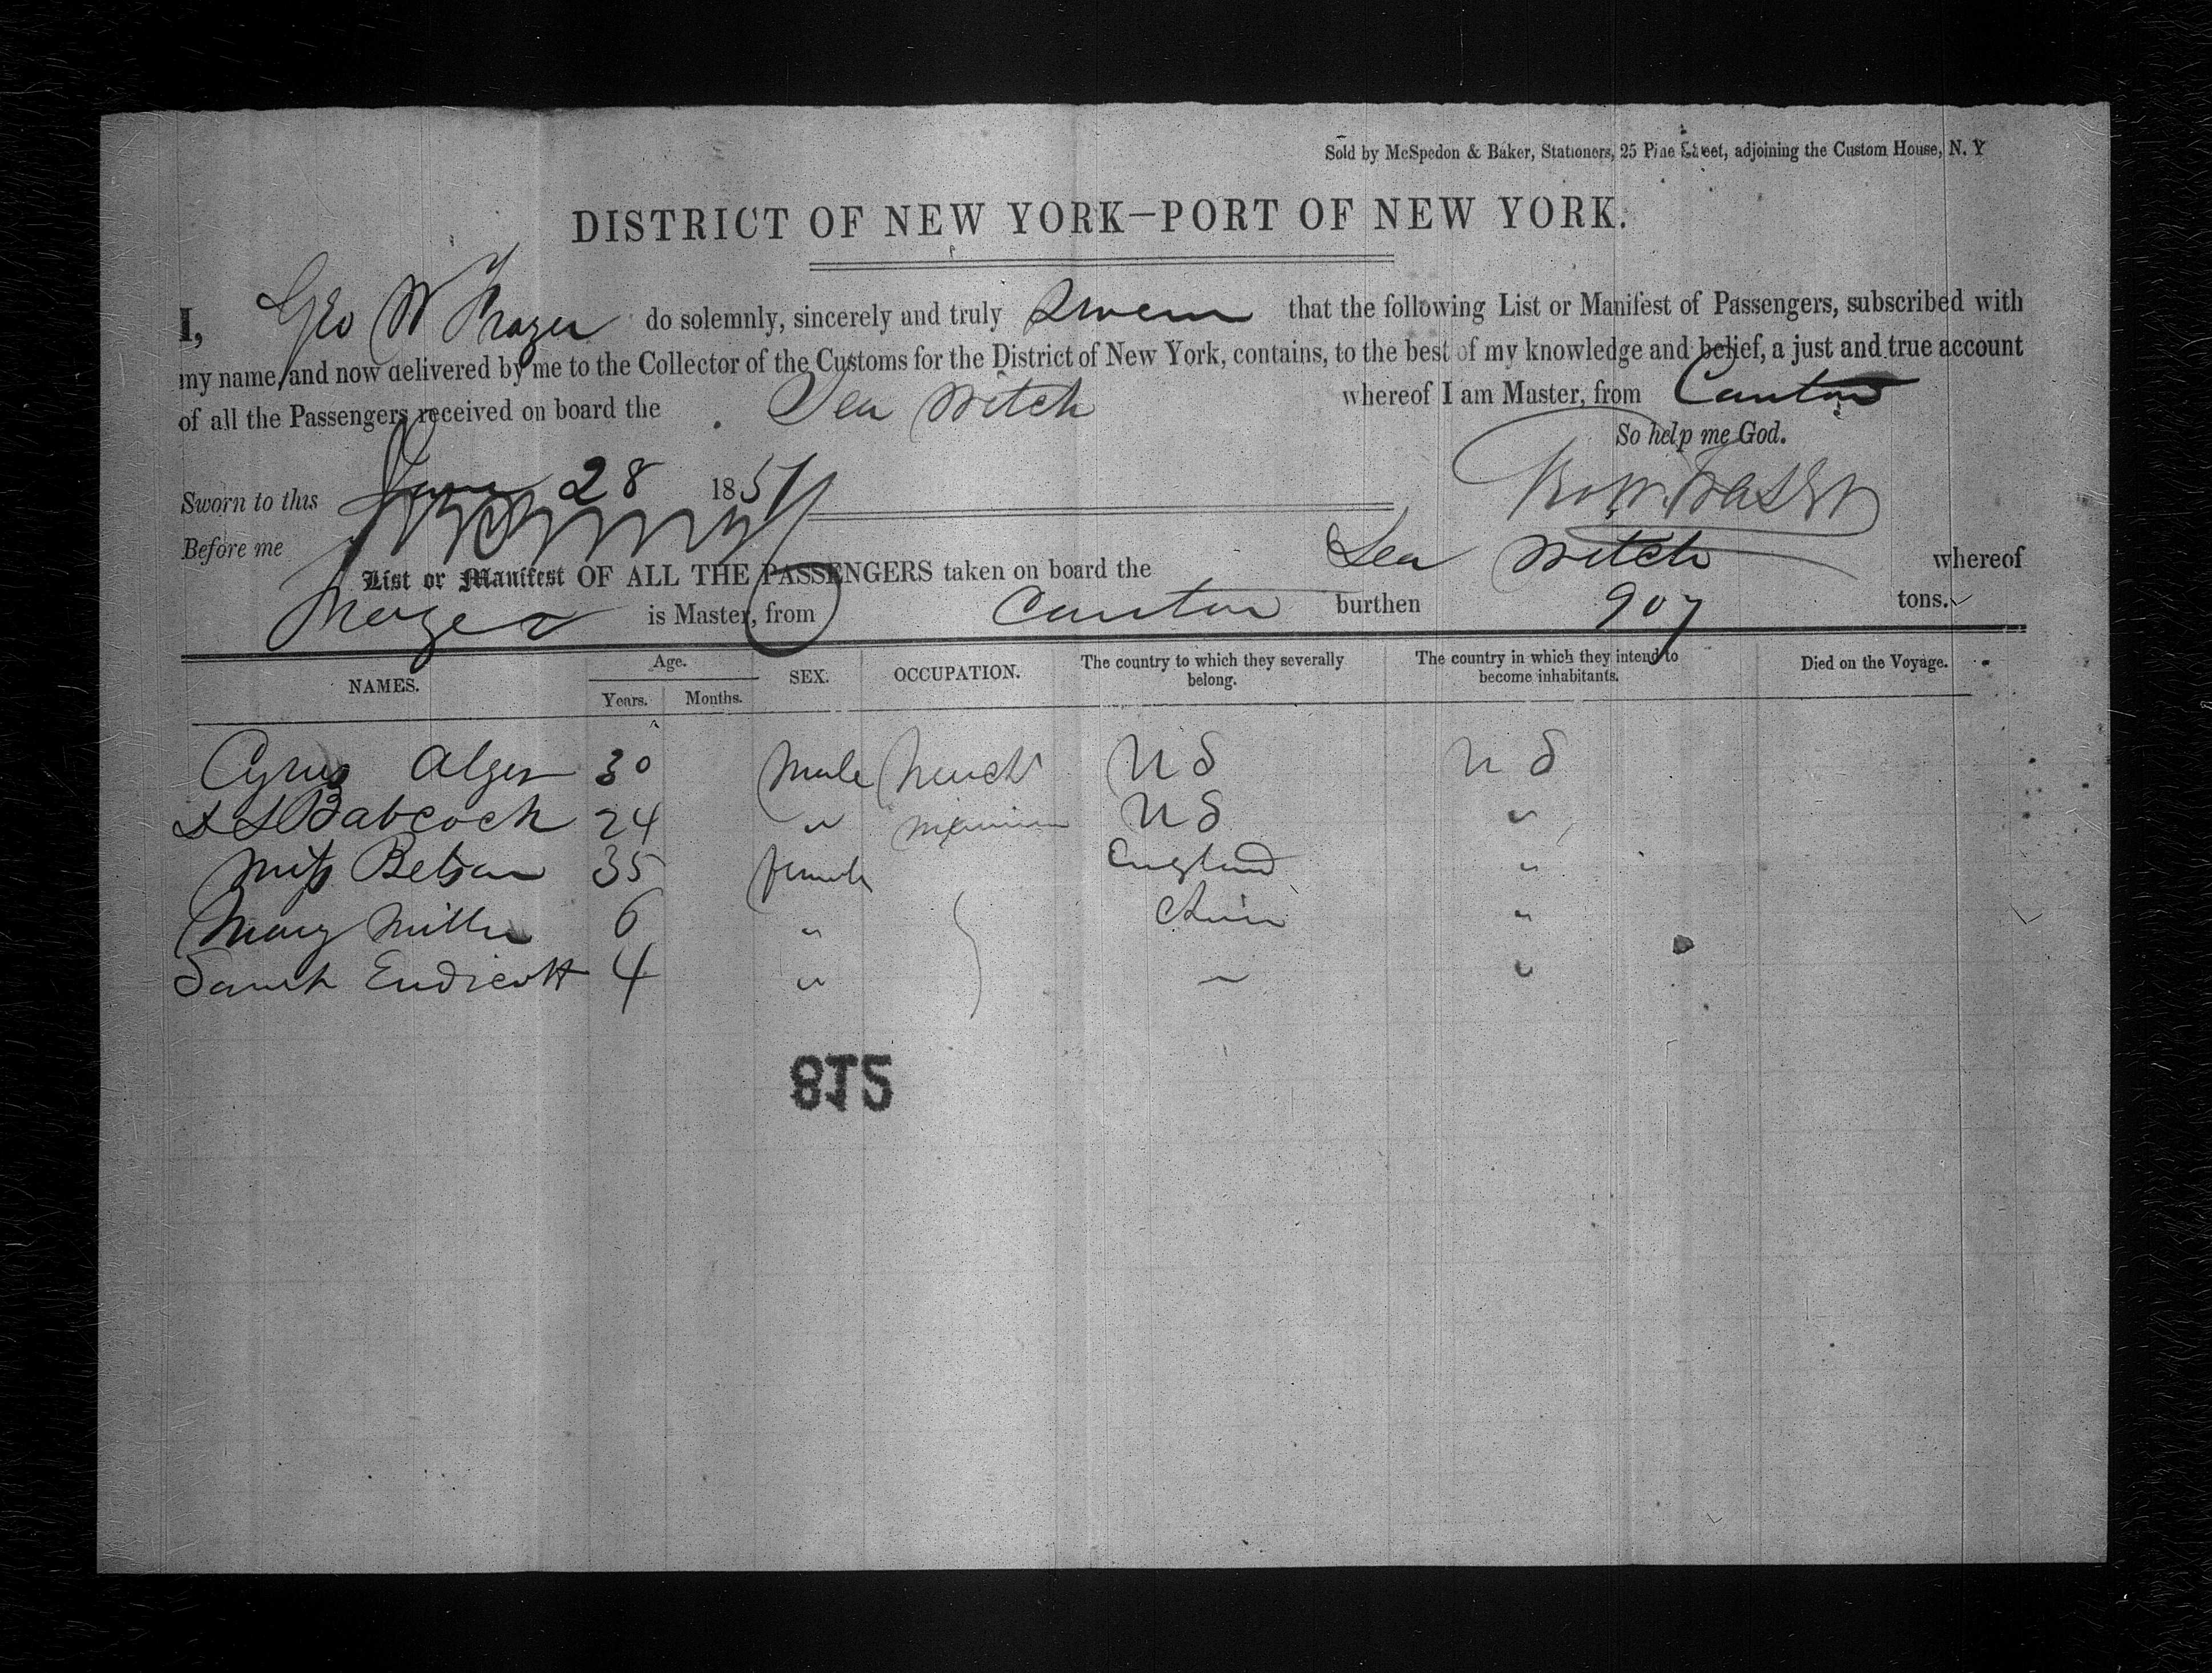 Sold by McSpedon & Baker, Stationers, 25 Pine Street, adjoining the Custom House, N. Y
DISTRICT OF NEW YORK—PORT OF NEW YORK.
I, Geo W Frazer do solemnly, sincerely and truly Swear that the following List or Manifest of Passengers, subscribed with
my name, and now delivered by me to the Collector of the Customs for the District of New York, contains, to the best of my knowledge and belief, a just and true account
of all the Passengers received on board the Sea Witch whereof I am Master, from Canton
So help me God.
Sworn to this 28 1851
Geo W. Fraser
Before me
List or Manifest OF ALL THE PASSENGERS taken on board the Sea Witch whereof
Frazer is Master, from Canton burthen 907 tons.
NAMES. Age. Years. Months. SEX. OCCUPATION. The country to which they severally belong. The country in which they intend to become inhabitants. Died on the Voyage.
Cyrus Alger 30 Male Mercht U S U S
Babcock 24 " U S "
Betran 35 female England "
Mary Miller 6 " China "
Sarah Endicott 4 " " "
812